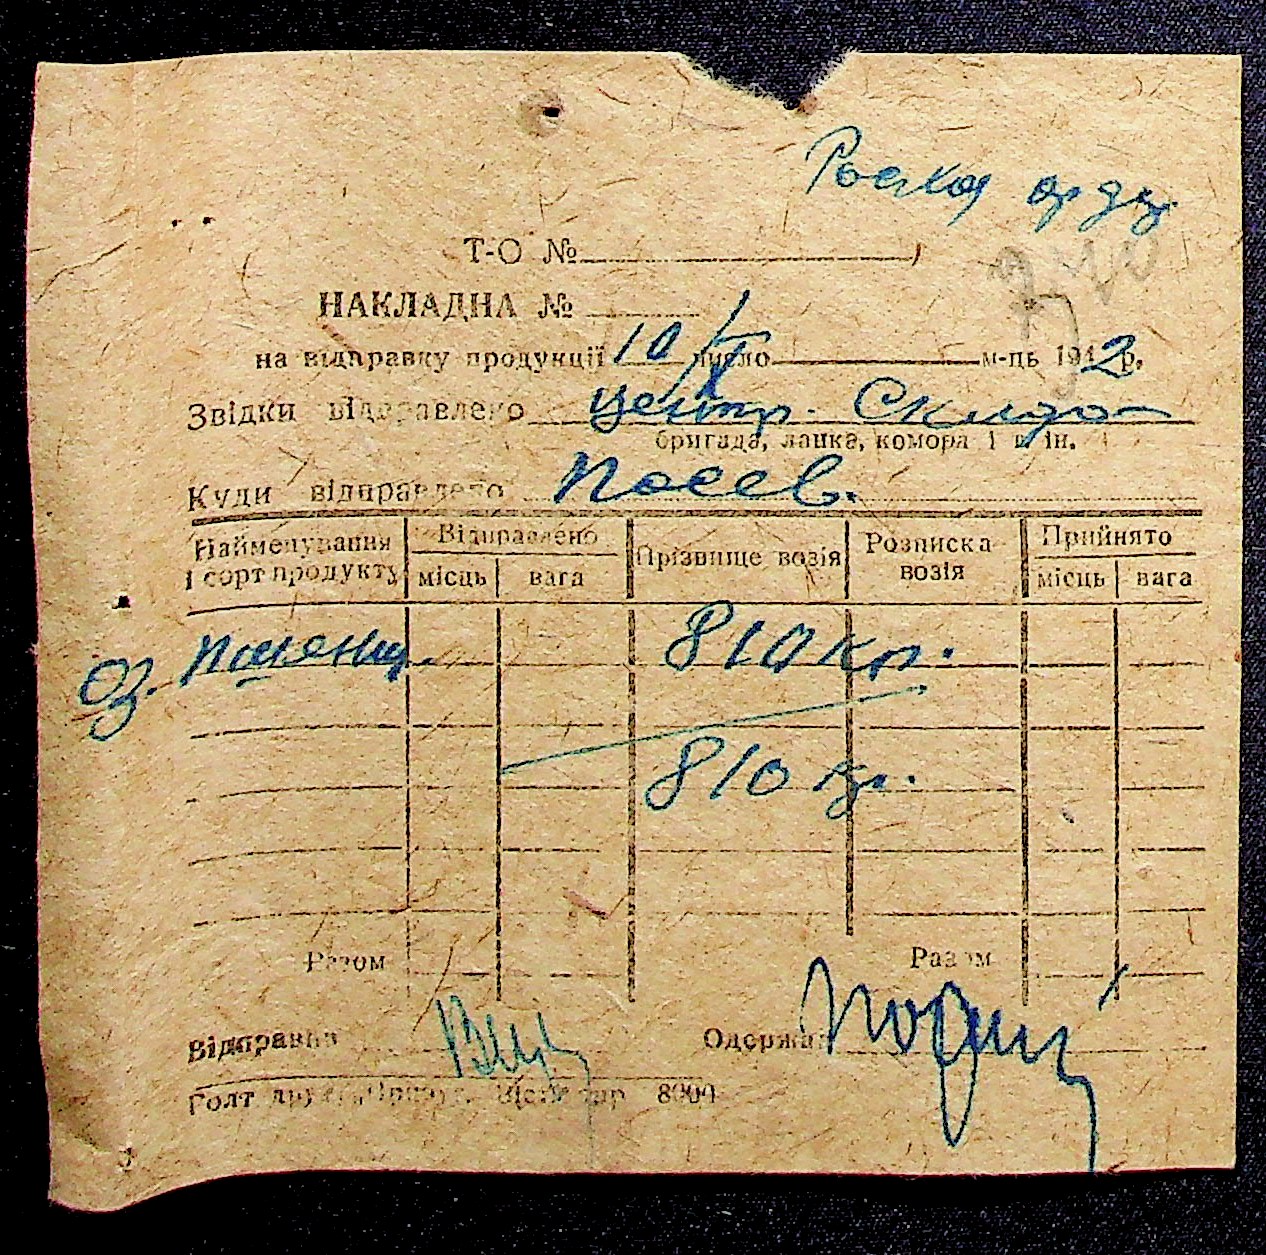 Т-О №
НАКЛАДНА №
на відправку продукції 10/X число м-ць 1942 р.
Звідки відправлено центр. Склад
бригада, ланка, комора і т. ін.
Куди відправлено посев.
Найменування і сорт продукту Відправлено Прізвище возія Розписка возія Прийнято
місць вага місць вага
Оз. пшениц. 810 кгр.
810 кгр.
Разом Разом
Відправив Одержав
8000